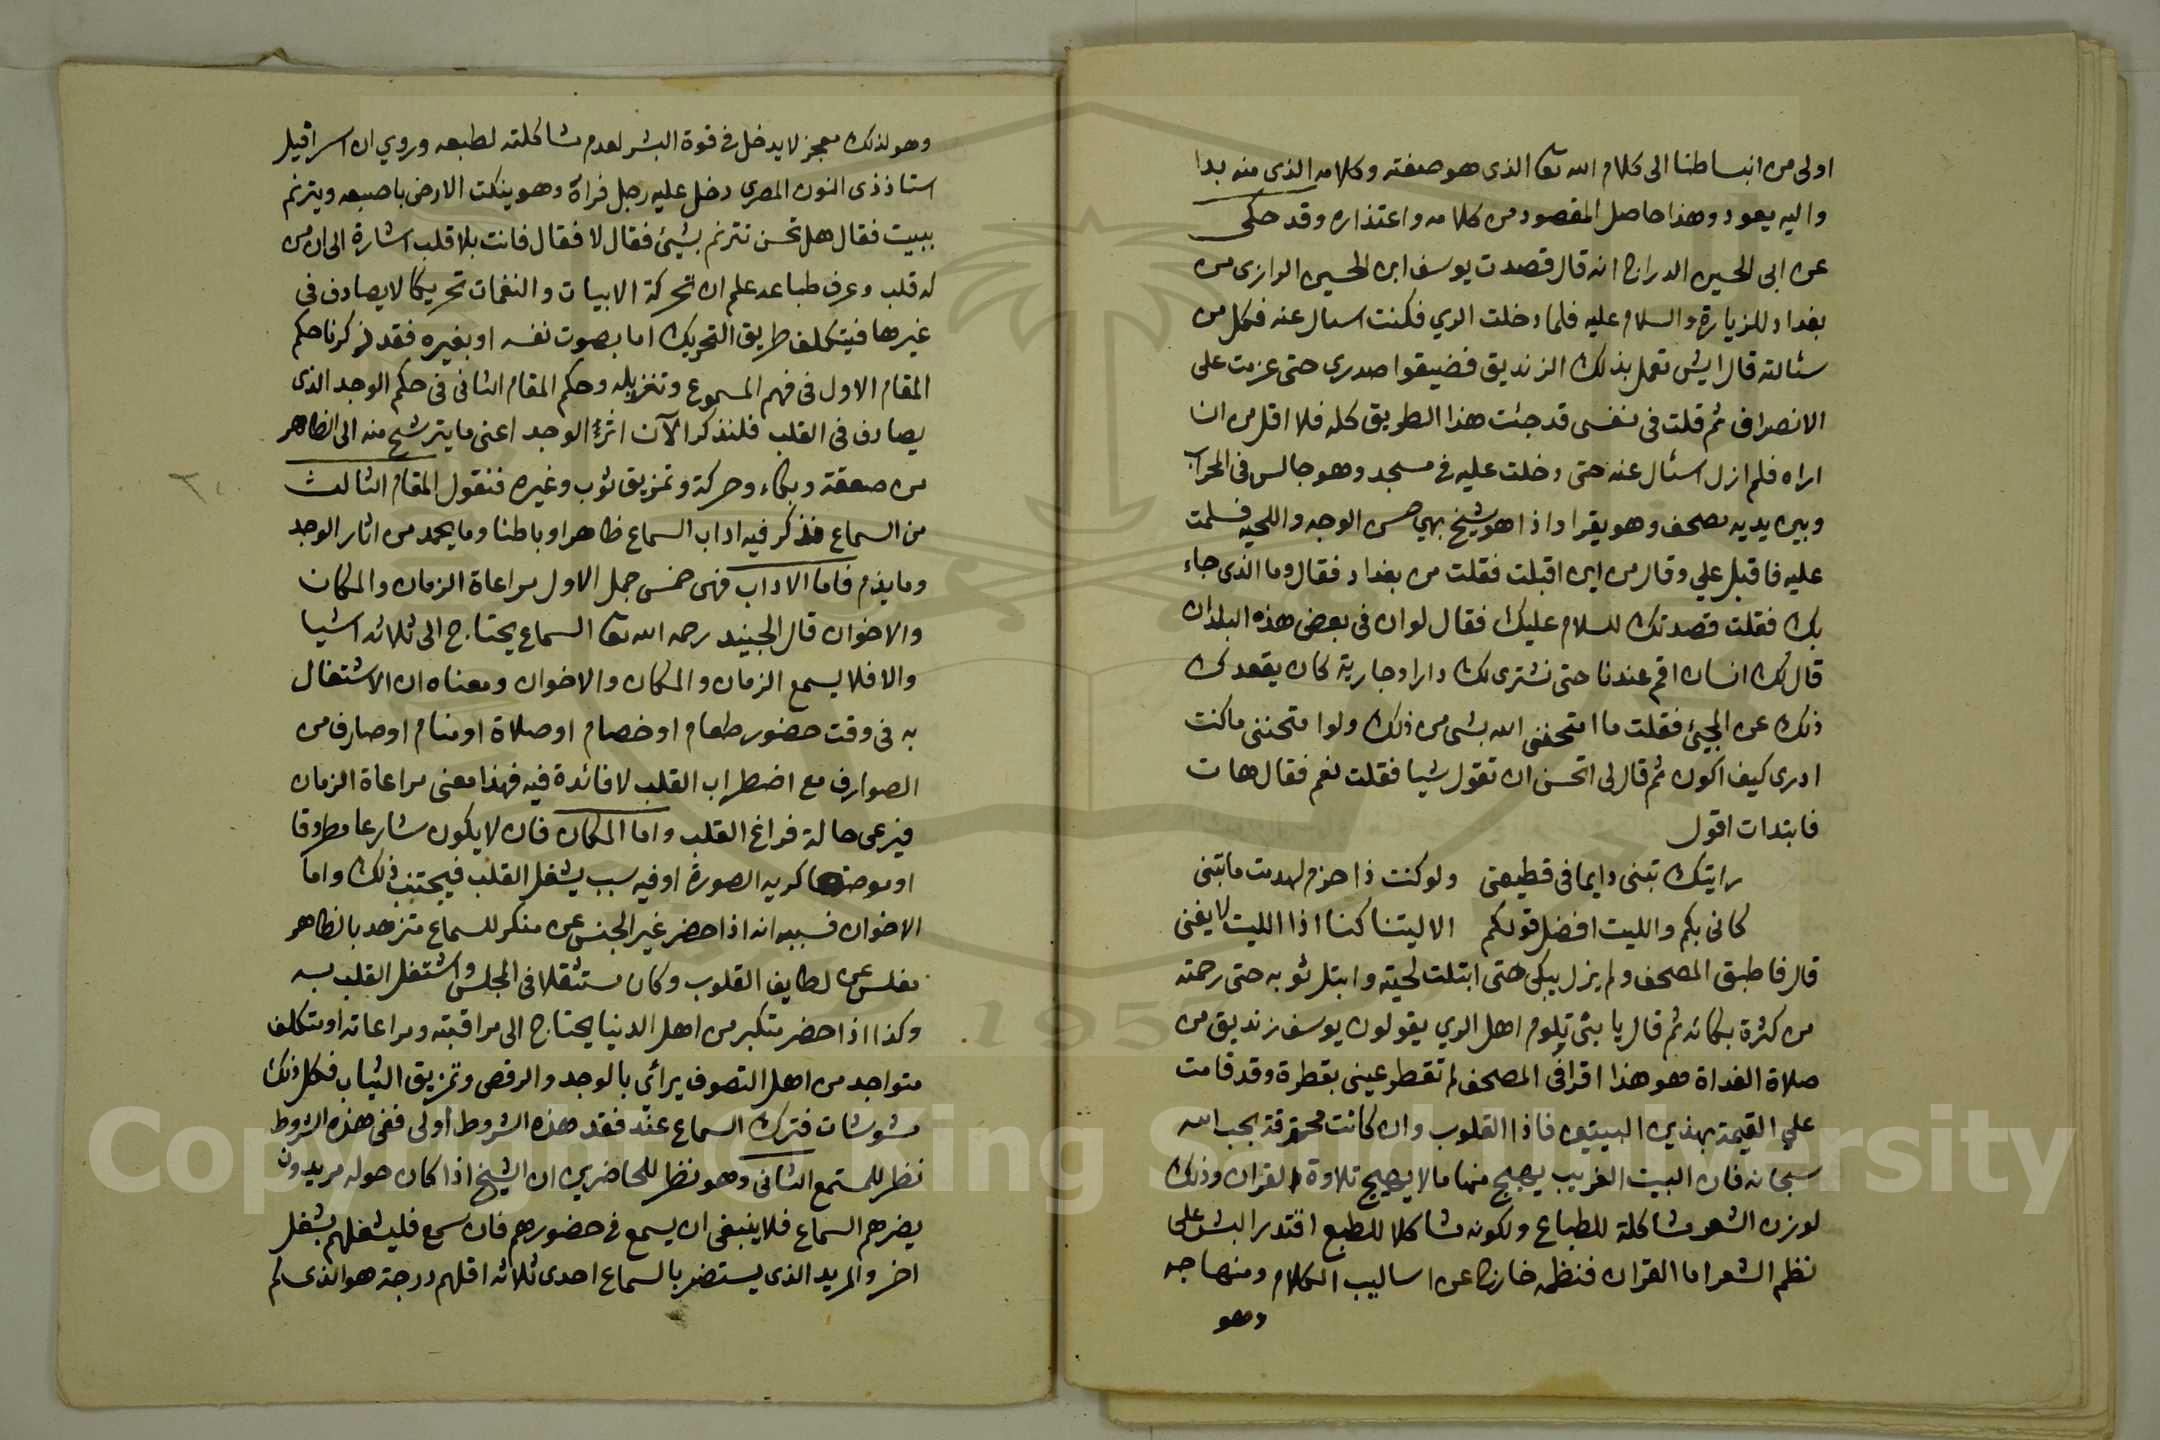 اولى من انبساطنا الى كلام الله تعا الذى هو صفته وكلامه الذى منه بدا
واليه يعود وهذا حاصل المقصود من كلامه واعتذاره وقد حكى
عن ابى الحسين الدراج انه قال قصدت يوسف ابن الحسين الرازى من
بغداد للزيارة والسلام عليه فلما دخلت الري فكنت اسال عنه فكل من
سئالته قال ايش تعمل بذلك الزنديق فضيقوا صدري حتى عزمت على
الانصراف ثم قلت فى نفسى قد جئت هذا الطريق كله فلا اقل من ان
اراه فلم ازل اسئال عنه حتى دخلت عليه فى مسجد وهو جالس فى المحراب
وبين يديه مصحف وهو يقرا واذا هو شيخ بهي حسن الوجه واللحيه فسلمت
عليه فاقبل علي وقال من اين اقبلت فقلت من بغداد فقال وما الذى جاء
بك فقلت قصدتك للسلام عليك فقال لو ان فى بعض هذه البلدان
قال لك انسان اقم عندنا حتى نشترى لك دارا وجارية كان يقعدك
ذلك عن المجيئ فقلت ما امتحننى الله بشى من ذلك ولو امتحننى ما كنت
ادرى كيف اكون ثم قال لى اتحسن ان تقول شيا فقلت نعم فقال هات
فابتدات اقول
رايتك تبنى دايما فى قطيعتى ولو كنت ذا حزم لهدمت ما تبنى
كانى بكم والليت افضل قولكم الا ليتنا كنا اذا الليت لا يغنى
قال فاطبق المصحف ولم يزل يبكى حتى ابتلت لحيته وابتل ثوبه حتى رحمته
من كثرة بكائه ثم قال يا بنى تلوم اهل الري يقولون يوسف زنديق من
صلاة الغداة هو هذا اقرا فى المصحف لم تقطر عينى بقطرة وقد قامت
علي القيمة بهذين البيتين فاذا القلوب وان كانت محترقة بحب الله
سبحانه فان البيت الغريب يهيج منها ما لا يهيج تلاوة القران وذلك
لوزن الشعر مشاكلة للطباع ولكونه مشاكلا للطبع اقتدر البشر على
نظم الشعر اما القران فنظمه خارج عن اساليب الكلام ومنهاجه
وهو
وهو لذلك معجز لا يدخل فى قوة البشر لعدم مشاكلته لطبعه وروي ان اسرافيل
استاذ ذى النون المصري دخل عليه رجل فراة وهو ينكت الارض باصبعه ويترنم
ببيت فقال هل تحسن تترنم بشيئ فقال لا فقال فانت بلا قلب اشارة الى ان من
له قلب وعرف طباعه علم ان تحركة الابيات والنغمات تحريكا لا يصادف فى
غيرها فيتكلف طريق التحريك اما بصوت نفسه او بغيره فقد ذكرنا حكم
المقام الاول فى فهم المسموع وتنزيله وحكم المقام الثانى فى حكم الوجد الذى
يصادف فى القلب فلنذكر الآن اثر الوجد اعنى ما يترشح منه الى الظاهر
من صعقة وبكاء وحركة وتمزيق ثوب وغيره فنقول المقام الثالث
من السماع فذكر فيه اداب السماع ظاهرا وباطنا وما يحمد من اثار الوجد
وما يذم فاما الاداب فهى خمس جمل الاول مراعاة الزمان والمكان
والاخوان قال الجنيد رحمه الله تعا السماع يحتاج الى ثلاثه اشيا
والا فلا يسمع الزمان والمكان والاخوان ومعناه ان الاشتغال
به فى وقت حضور طعام او خصام او صلاة او منام او صارف من
الصوارف مع اضطراب القلب لا فائدة فيه فهذا معنى مراعاة الزمان
فيرعى حالة فراغ القلب واما المكان فان لا يكون شارعا مطروقا
او موضعا كريه الصورة او فيه سبب يشغل القلب فيجتنب ذلك واما
الاخوان فسببه انه اذا حضر غير الجنس عن منكر للسماع متزهد بالظاهر
مفلس عن لطايف القلوب وكان مستثقلا فى المجلس واشتغل القلب به
وكذا اذا حضر متكبر من اهل الدنيا يحتاج الى مراقبته ومراعاته او متكلف
متواجد من اهل التصوف يرائي بالوجد والرقص وتمزيق الثياب فكل ذلك
مشوشات فترك السماع عند فقد هذه الشروط أولى ففى هذه الشروط
نظر للمستمع الثانى وهو نظر للحاضرين ان الشيخ اذا كان حوله مريدون
يضرهم السماع فلا ينبغى ان يسمع فى حضورهم فان سمع فليشغلهم بشغل
اخر والمريد الذى يستضر بالسماع احدى ثلاثه اقلهم درجة هو الذى لم
Copyright © King Saud University
1957